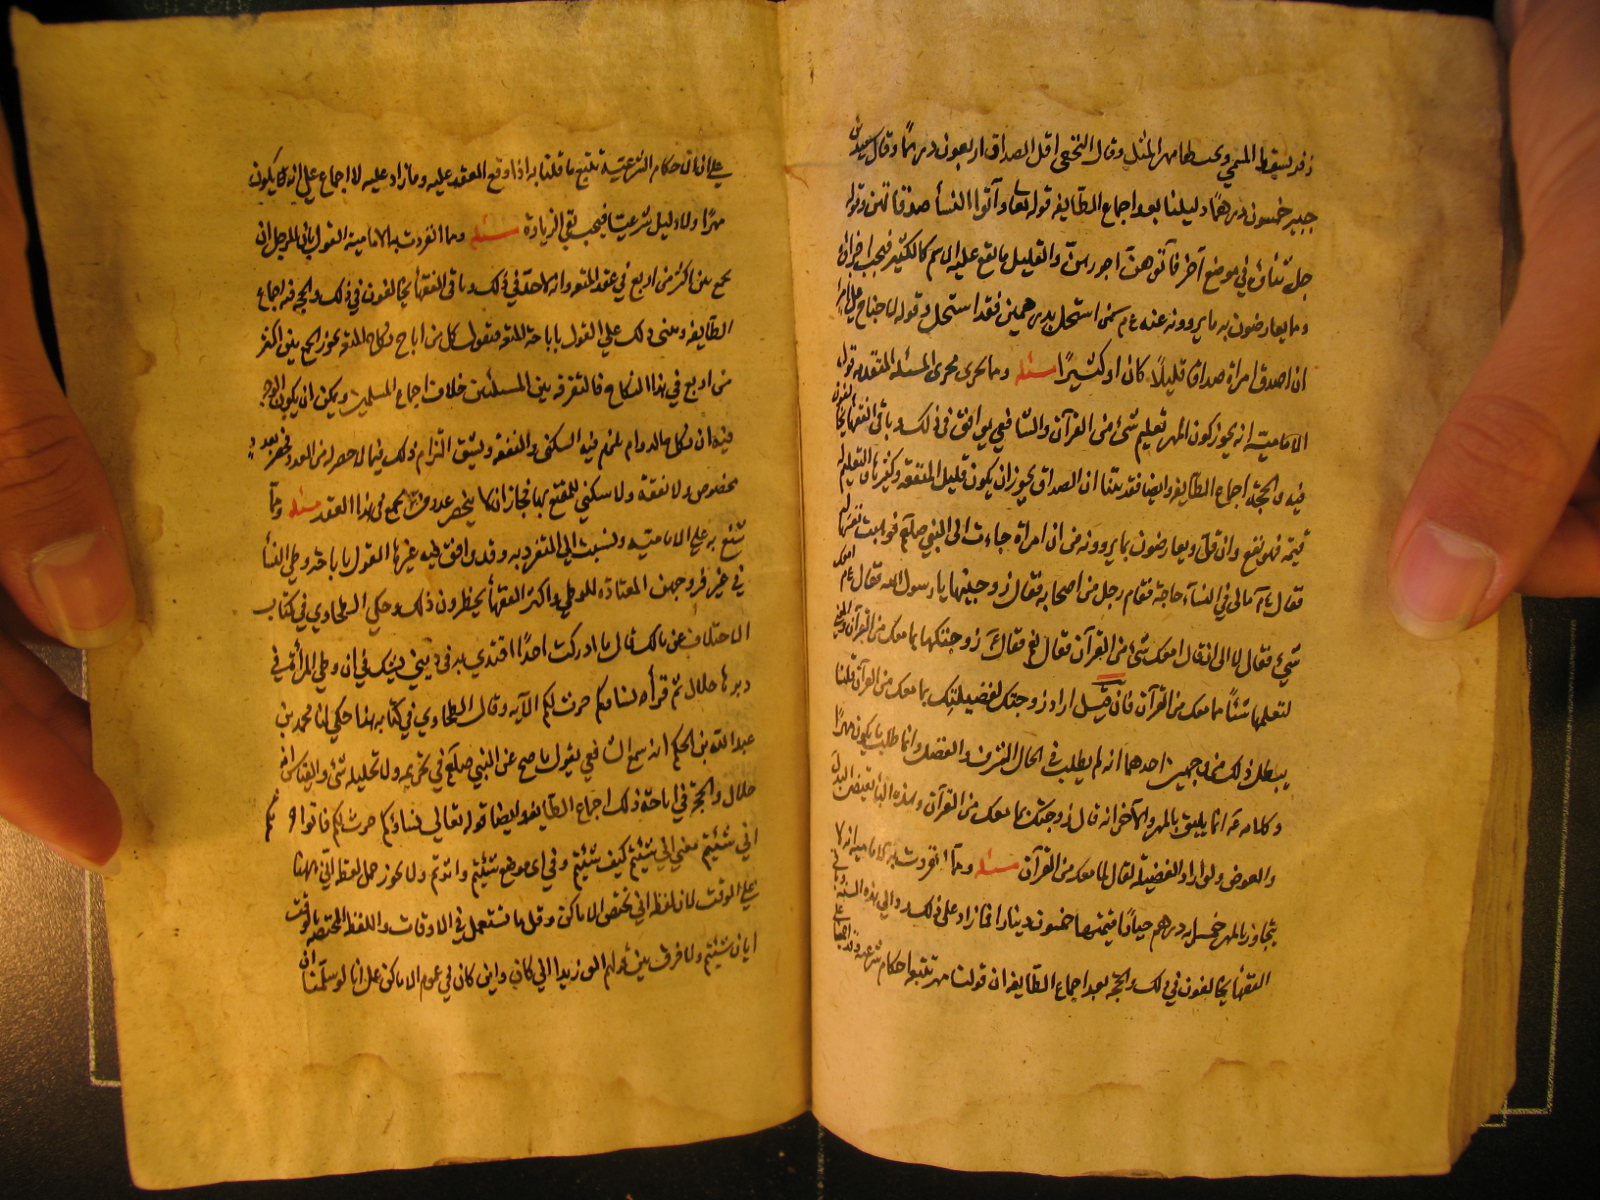 زفر يسقط المسمي ويجب لها مهر المثل وقال النخعي اقل الصداق اربعون درهمًا وقال سعيد بن
جبير خمسون درهمًا دليلنا بعد اجماع الطايفه قوله تعا وآتوا النسأ صدقاتهن وقوله
جل ثناؤه في موضع آخر فآتوهن اجورهن والقليل يقع عليه الاسم كالكثير فيجب اجزاؤه
وما يعارضون به ما يروونه عنه ع م من استحل بدرهمين فقد استحل وقوله لا جناح علي امرء
ان اصدق امراة صداقا قليلاً كان او كثيرًا مسئله وما يجرى مجرى المسئله المتقدمه قول
الاماميه انه يجوز كون المهر تعليم شئ من القرآن والشافعي يوافق فى ذلك وباقى الفقها يخالفون
فيه والحجة اجماع الطايفه وايضا فقد بيّنا ان الصداق يجوز ان يكون قليل المنفعه وكثيرها والتعليم له
قيمه فهو نفع وان قل ويعارضون بما يروونه من ان امراة جاءت الى النبي صلعم فوهبت نفسها له
فقال ع م مالى في النسآء حاجة فقام رجل من اصحابه فقال زوجنيها يا رسول الله فقال ع م امعك
شئ فقال لا الى ان قال امعك شئ من القرآن فقال نعم فقال زوجتكها بما معك من القرآن
لتعلمها شئًا مما معك من القرآن فان قيل اراد زوجتك لفضيلتك بما معك من القرآن قلنا
يبطل ذلك من وجهين احدهما انه لم يطلب فى الحال الشرف والفضل وانما طلب ما يكون مهرًا
وكلامه ع م انما يليق بالمهر والآخر انه قال زوجتك بما معك من القرآن وهذه البآ تقتضى البدل
والعوض ولو اراد الفضيلة لقال لما معك من القرآن مسئله ومما انفردت به الاماميه انه لا
يتجاوز بالمهر خمسمايه درهم جيادًا قيمتها خمسون دينارا فما زاد على ذلك رد الى هذه السنه وباقى
الفقهأ يخالفون في ذلك والحجه بعد اجماع الطايفه ان قولنا مهر تتبعه احكام شرعيه وقد اجمعنا على
علي ان الاحكام الشرعية تتبع ما قلنا به اذا وقع العقد عليه وما زاد عليه لا اجماع علي انه يكون
مهرًا ولا دليل شرعيا فيجب نفي الزيادة مسئله ومما انفردت به الاماميه القول بان للرجل ان
يجمع بين اكثر من اربع في عقد المتعه وانه لا حد في ذلك وباقى الفقهأ يخالفون في ذلك والحجه فيه اجماع
الطآيفه ومبني ذلك علي القول باباحة المتعه فنقول كل من اباح نكاح المتعه يجوز الجمع بين اكثر
من اربع في هذا النكاح فالتفرقه بين المسئلتين خلاف اجماع المسلمين ويمكن ان يكون الوجه
فيه ان نكاح الدوام يلزم فيه السكنى والنفقه ويشق التزام ذلك فيما لا حصر له من العدد فحصر بعدد
مخصوص ولا نفقة ولا سكني للمتمتع بها فجاز ان لا ينحصر عدد من يجمع فى هذا العقد مسئله ومما
شنع به علي الاماميه ونسبت الي التفرد به وقد وافق فيه غيرها القول باباحة وطي النسأ
في غير فروجهن المعتاده للوطي واكثر الفقهأ يحظرون ذلك وحكي الطحاوي في كتاب
الاختلاف عن مالك انه قال ما ادركت احدًا اقتدي به في ديني يشك في ان وطي المرأة في
دبرها حلال ثم قرأ نساؤكم حرث لكم الآية وقال الطحاوي في كتابه هذا حكي لنا محمد بن
عبد الله بن الحكم انه سمع الشافعي يقول ما صح عن النبي صلعم في تحريمه ولا تحليله شئ والقياس انه
حلال والحجة في اباحة ذلك اجماع الطآيفه وايضا قوله تعالى نساؤكم حرث لكم فاتوا حرثكم
اني شئتم معني انى شئتم كيف شئتم وفي اى موضع شئتم واثرتم ولا يجوز حمل لفظة انّي ههنا
علي الوقت لان لفظة اني تختص الاماكن وقل ما تستعمل في الاوقات واللفظ المختصه بالوقت
ايان شئتم ولا فرق بين قولهم الق زيدا انى كان واين كان في عموم الاماكن على انا لو سلمنا ان